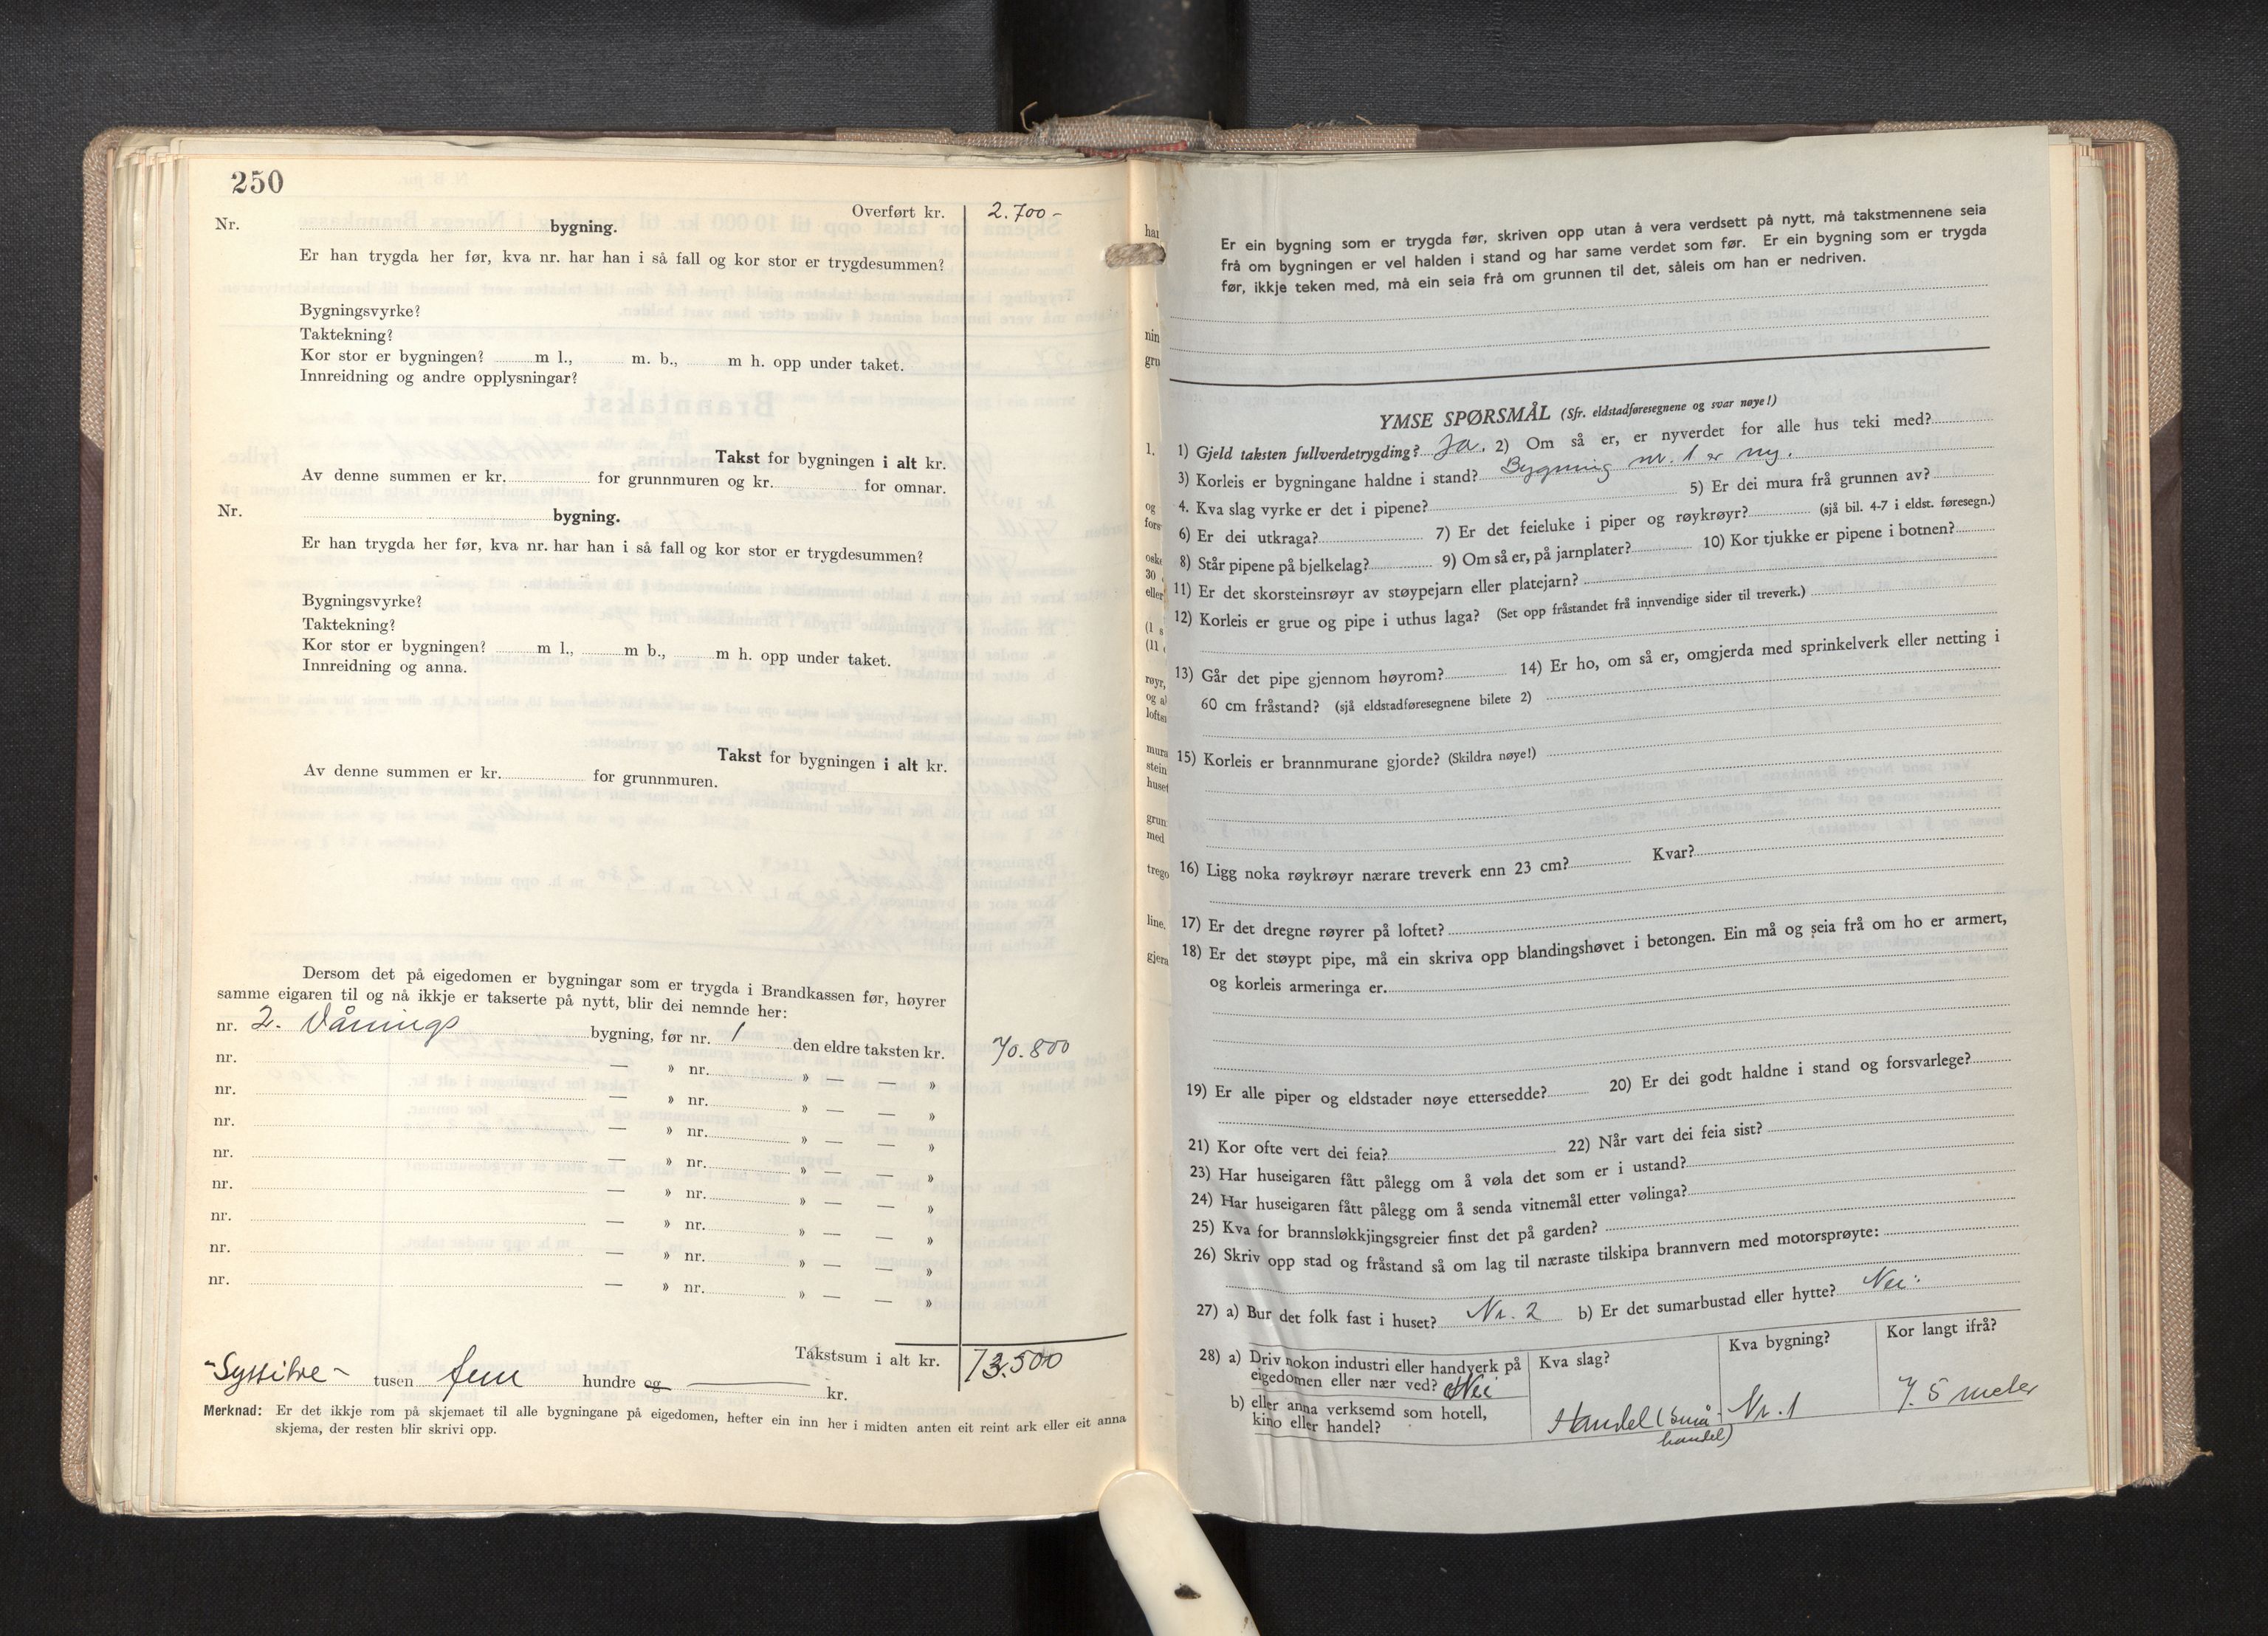 250
Overført kr. 2.700-
Nr. bygning.
Er han trygda her før, kva nr. har han i så fall og kor stor er trygdesummen?
Bygningsvyrke?
Taktekning?
Kor stor er bygningen? m l., m. b., m h. opp under taket.
Innreidning og andre opplysningar?
Takst for bygningen i alt kr.
Av denne summen er kr. for grunnmuren og kr. for omnar.
Nr. bygning.
Er han trygda her før, kva nr. har han i så fall og kor stor er trygdesummen?
Bygningsvyrke?
Taktekning?
Kor stor er bygningen? m l., m b., m h. opp under taket.
Innreidning og anna.
Takst for bygningen i alt kr.
Av denne summen er kr. for grunnmuren.
Dersom det på eigedomen er bygningar som er trygda i Brandkassen før, høyrer
samme eigaren til og nå ikkje er takserte på nytt, blir dei nemnde her:
nr. 2. Vånings bygning, før nr. 1 den eldre taksten kr. 70.800
nr. — » nr. » — — »
nr. — » nr. » — — »
nr. — » nr. » — — »
nr. — » nr. » — — »
nr. — » nr. » — — »
nr. — » nr. » — — »
nr. — » nr. » — — »
nr. — » nr. » — — »
Takstsum i alt kr. 73.500
-Syttitre- tusen fem hundre og — kr.
Merknad: Er det ikkje rom på skjemaet til alle bygningane på eigedomen, hefter ein inn her i midten anten eit reint ark eller eit anna
skjema, der resten blir skrivi opp.
Er ein bygning som er trygda før, skriven opp utan å vera verdsett på nytt, må takstmennene seia
frå om bygningen er vel halden i stand og har same verdet som før. Er ein bygning som er trygda
før, ikkje teken med, må ein seia frå om grunnen til det, såleis om han er nedriven.
YMSE SPØRSMÅL (Sfr. eldstadføresegnene og svar nøye!)
1) Gjeld taksten fullverdetrygding? Ja. 2) Om så er, er nyverdet for alle hus teki med?
3) Korleis er bygningane haldne i stand? Bygning nr. 1 er ny.
4. Kva slag vyrke er det i pipene? 5) Er dei mura frå grunnen av?
6) Er dei utkraga? 7) Er det feieluke i piper og røykrøyr? (sjå bil. 4-7 i eldst. føresegn.)
8) Står pipene på bjelkelag? 9) Om så er, på jarnplater? 10) Kor tjukke er pipene i botnen?
11) Er det skorsteinsrøyr av støypejarn eller platejarn?
12) Korleis er grue og pipe i uthus laga? (Set opp fråstandet frå innvendige sider til treverk.)
13) Går det pipe gjennom høyrom? 14) Er ho, om så er, omgjerda med sprinkelverk eller netting i
60 cm fråstand? (sjå eldstadføresegnene bilete 2)
15) Korleis er brannmurane gjorde? (Skildra nøye!)
16) Ligg noka røykrøyr nærare treverk enn 23 cm? Kvar?
17) Er det dregne røyrer på loftet?
18) Er det støypt pipe, må ein skriva opp blandingshøvet i betongen. Ein må og seia frå om ho er armert,
og korleis armeringa er.
19) Er alle piper og eldstader nøye ettersedde? 20) Er dei godt haldne i stand og forsvarlege?
21) Kor ofte vert dei feia? 22) Når vart dei feia sist?
23) Har huseigaren fått pålegg om å vøla det som er i ustand?
24) Har huseigaren fått pålegg om å senda vitnemål etter vølinga?
25) Kva for brannsløkkjingsgreier finst det på garden?
26) Skriv opp stad og fråstand så om lag til næraste tilskipa brannvern med motorsprøyte:
27) a) Bur det folk fast i huset? Nr. 2 b) Er det sumarbustad eller hytte? Nei.
28) a) Driv nokon industri eller handverk på Kva slag? Kva bygning? Kor langt ifrå?
eigedomen eller nær ved? Nei
b) eller anna verksemd som hotell, Handel (små- Nr. 1 7.5 meter
kino eller handel? handel)